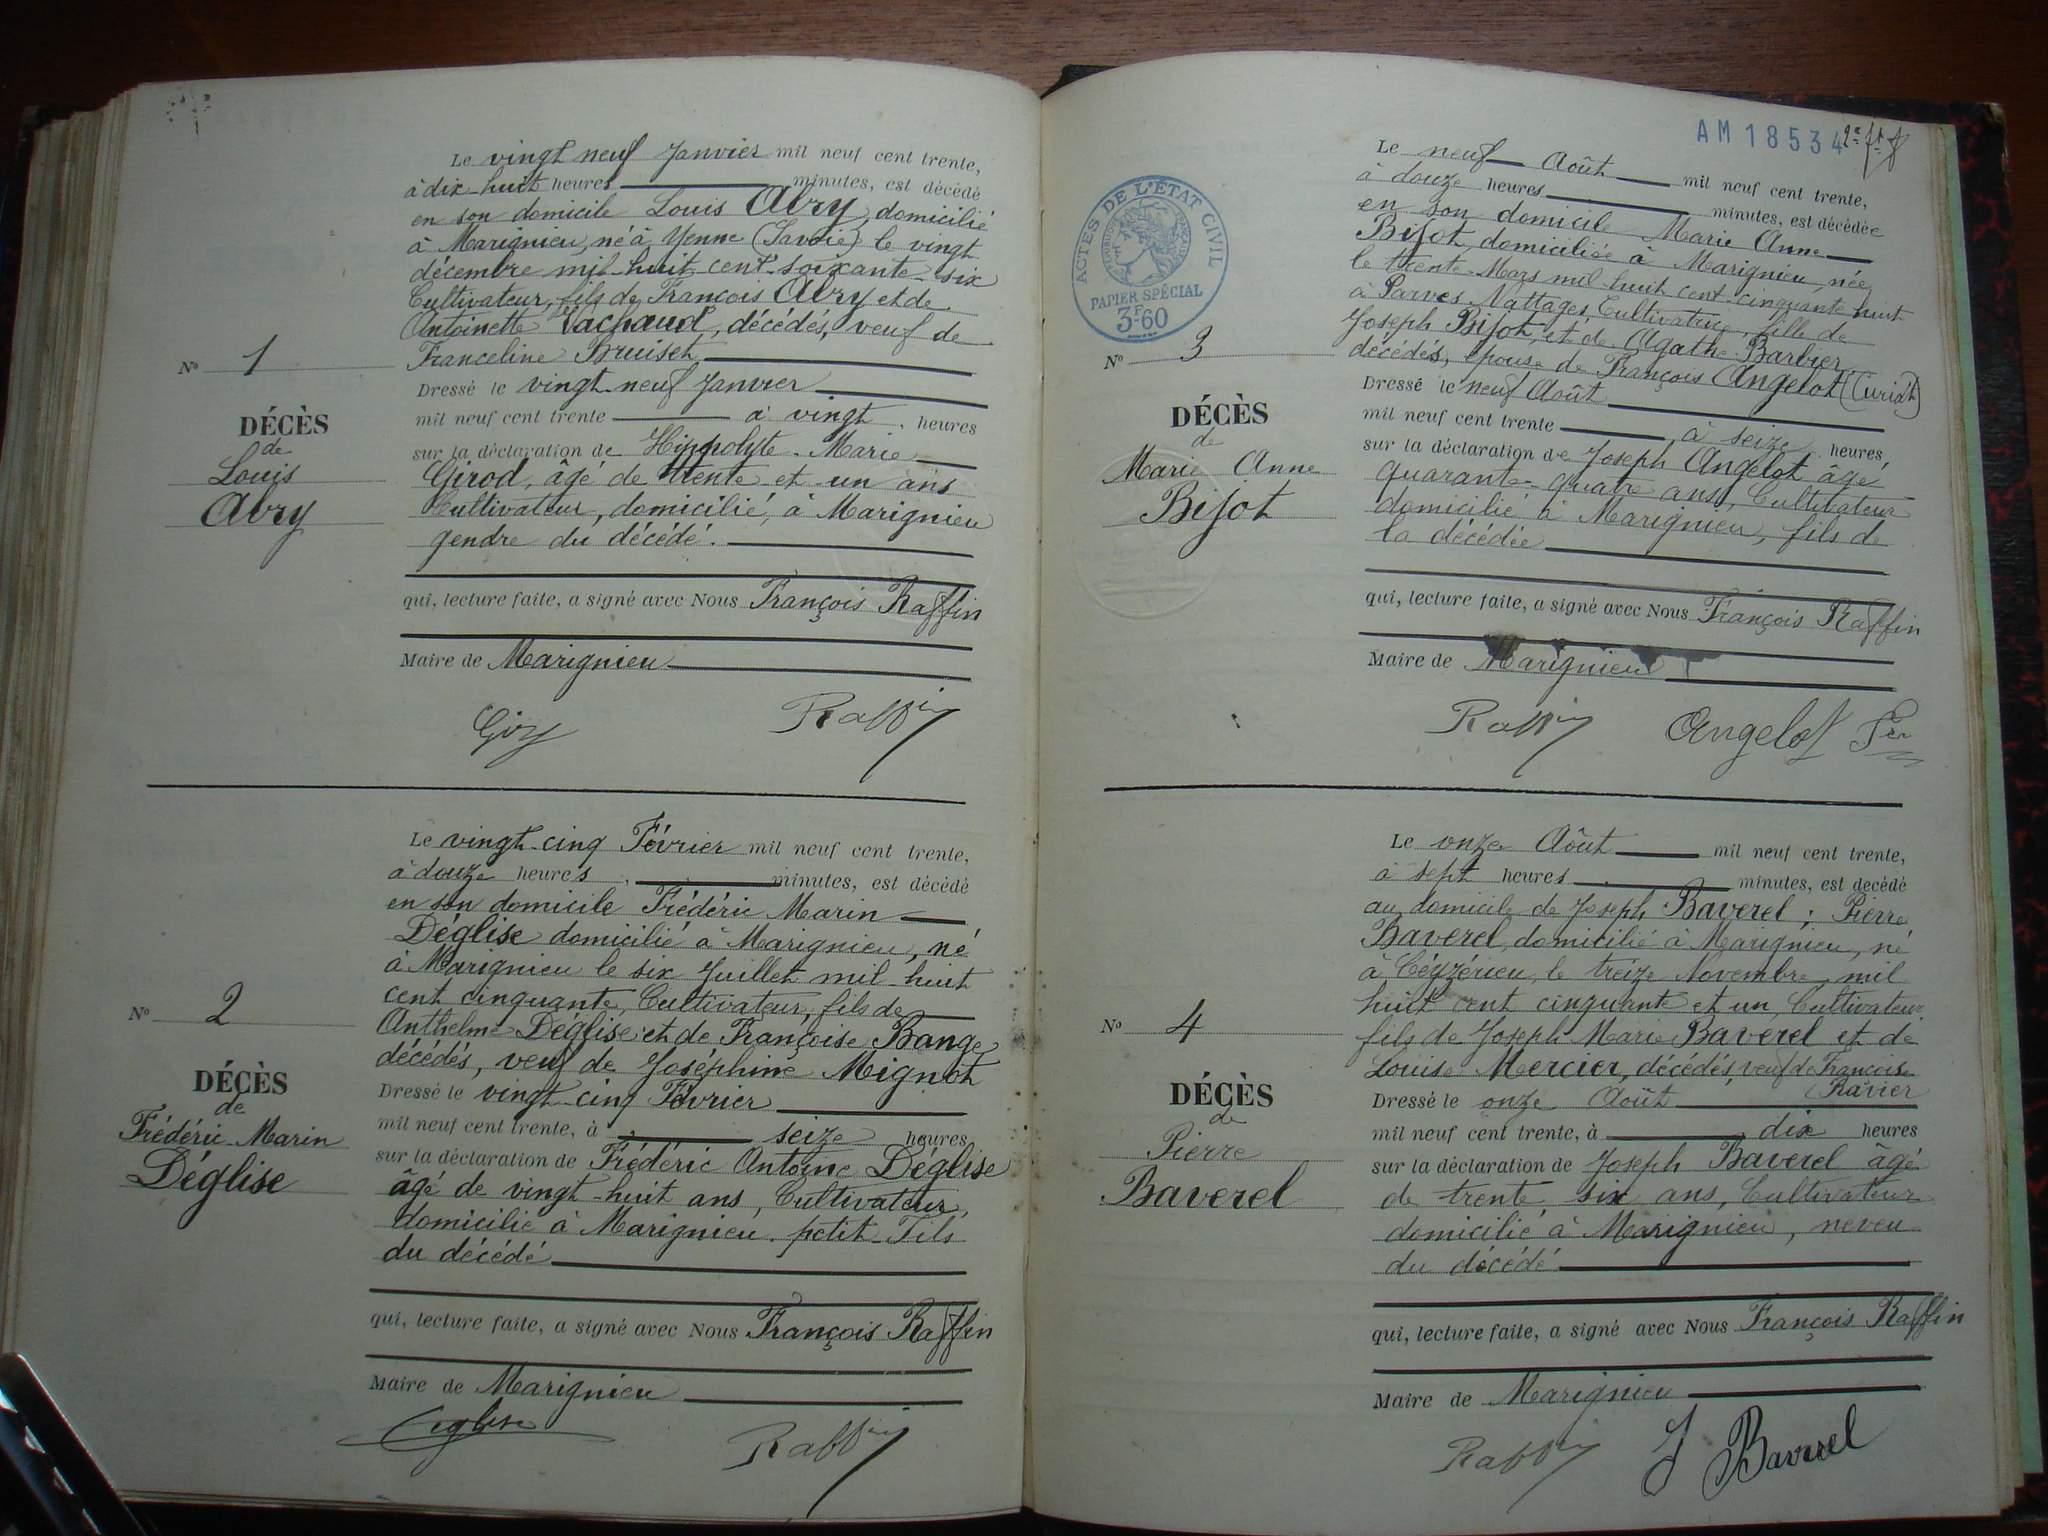 Le vingt neuf Janvier mil neuf cent trente,
à dix-huit heures minutes, est décédé
en son domicile Louis Abry, domicilié
à Marignieu, né à Yenne (Savoie) le vingt
décembre mil-huit cent-soixante-six
Cultivateur, fils de François Abry et de
Antoinette Vachaud, décédés, veuf de
Franceline Bruiset
Nº 1
Dressé le vingt-neuf Janvier
mil neuf cent trente à vingt, heures
DÉCÈS
de
Louis
Abry
sur la déclaration de Hippolyte-Marie
Girod, âgé de trente et un ans
Cultivateur, domicilié, à Marignieu
gendre du décédé.
qui, lecture faite, a signé avec Nous François Raffin
Maire de Marignieu
Raffin
Le vingt-cinq Février mil neuf cent trente,
à douze heures minutes, est décédé
en son domicile Frédéric Marin
Déglise domicilié à Marignieu, né
à Marignieu le six Juillet mil-huit
cent cinquante, Cultivateur, fils de
Anthelme Déglise et de Françoise Bange
décédés, veuf de Joséphine Mignot
Nº 2
DÉCÈS
de
Frédéric-Marin
Déglise
Dressé le vingt-cinq Février
mil neuf cent trente, à seize heures
sur la déclaration de Frédéric Antoine Déglise
âgé de vingt-huit ans, Cultivateur,
domicilié à Marignieu. petit-Fils
du décédé
qui, lecture faite, a signé avec Nous François Raffin
Maire de Marignieu
Déglise Raffin
AM 18534
ACTES DE L'ÉTAT CIVIL
PAPIER SPÉCIAL
3F60
Le neuf Août mil neuf cent trente,
à douze heures minutes, est décédée
en son domicile Marie Anne
Bijot, domiciliée à Marignieu, née
le trente-Mars mil-huit cent-cinquante huit
à Parves-Nattages, Cultivatrice, fille de
Joseph Bijot, et de Agathe Barbier
décédés, épouse de François Angelot (Curiat)
Nº 3
DÉCÈS
de
Marie Anne
Bijot
Dressé le neuf Août
mil neuf cent trente à seize heures,
sur la déclaration de Joseph Angelot âgé
quarante-quatre ans, Cultivateur
domicilié à Marignieu, fils de
la décédée
qui, lecture faite, a signé avec Nous François Raffin
Maire de Marignieu
Raffin Angelot
Le onze Août mil neuf cent trente,
à sept heures minutes, est décédé
au domicile de Joseph Baverel; Pierre
Baverel, domicilié à Marignieu, né
à Ceyzérieu, le treize Novembre mil
huit cent cinquante et un, Cultivateur
fils de Joseph-Marie Baverel et de
Louise Mercier, décédés, veuf de Françoise
Ravier
Nº 4
DÉCÈS
de
Pierre
Baverel
Dressé le onze Août
mil neuf cent trente, à dix heures
sur la déclaration de Joseph Baverel âgé
de trente six ans, Cultivateur
domicilié à Marignieu, neveu
du décédé
qui, lecture faite, a signé avec Nous François Raffin
Maire de Marignieu
Raffin J Baverel